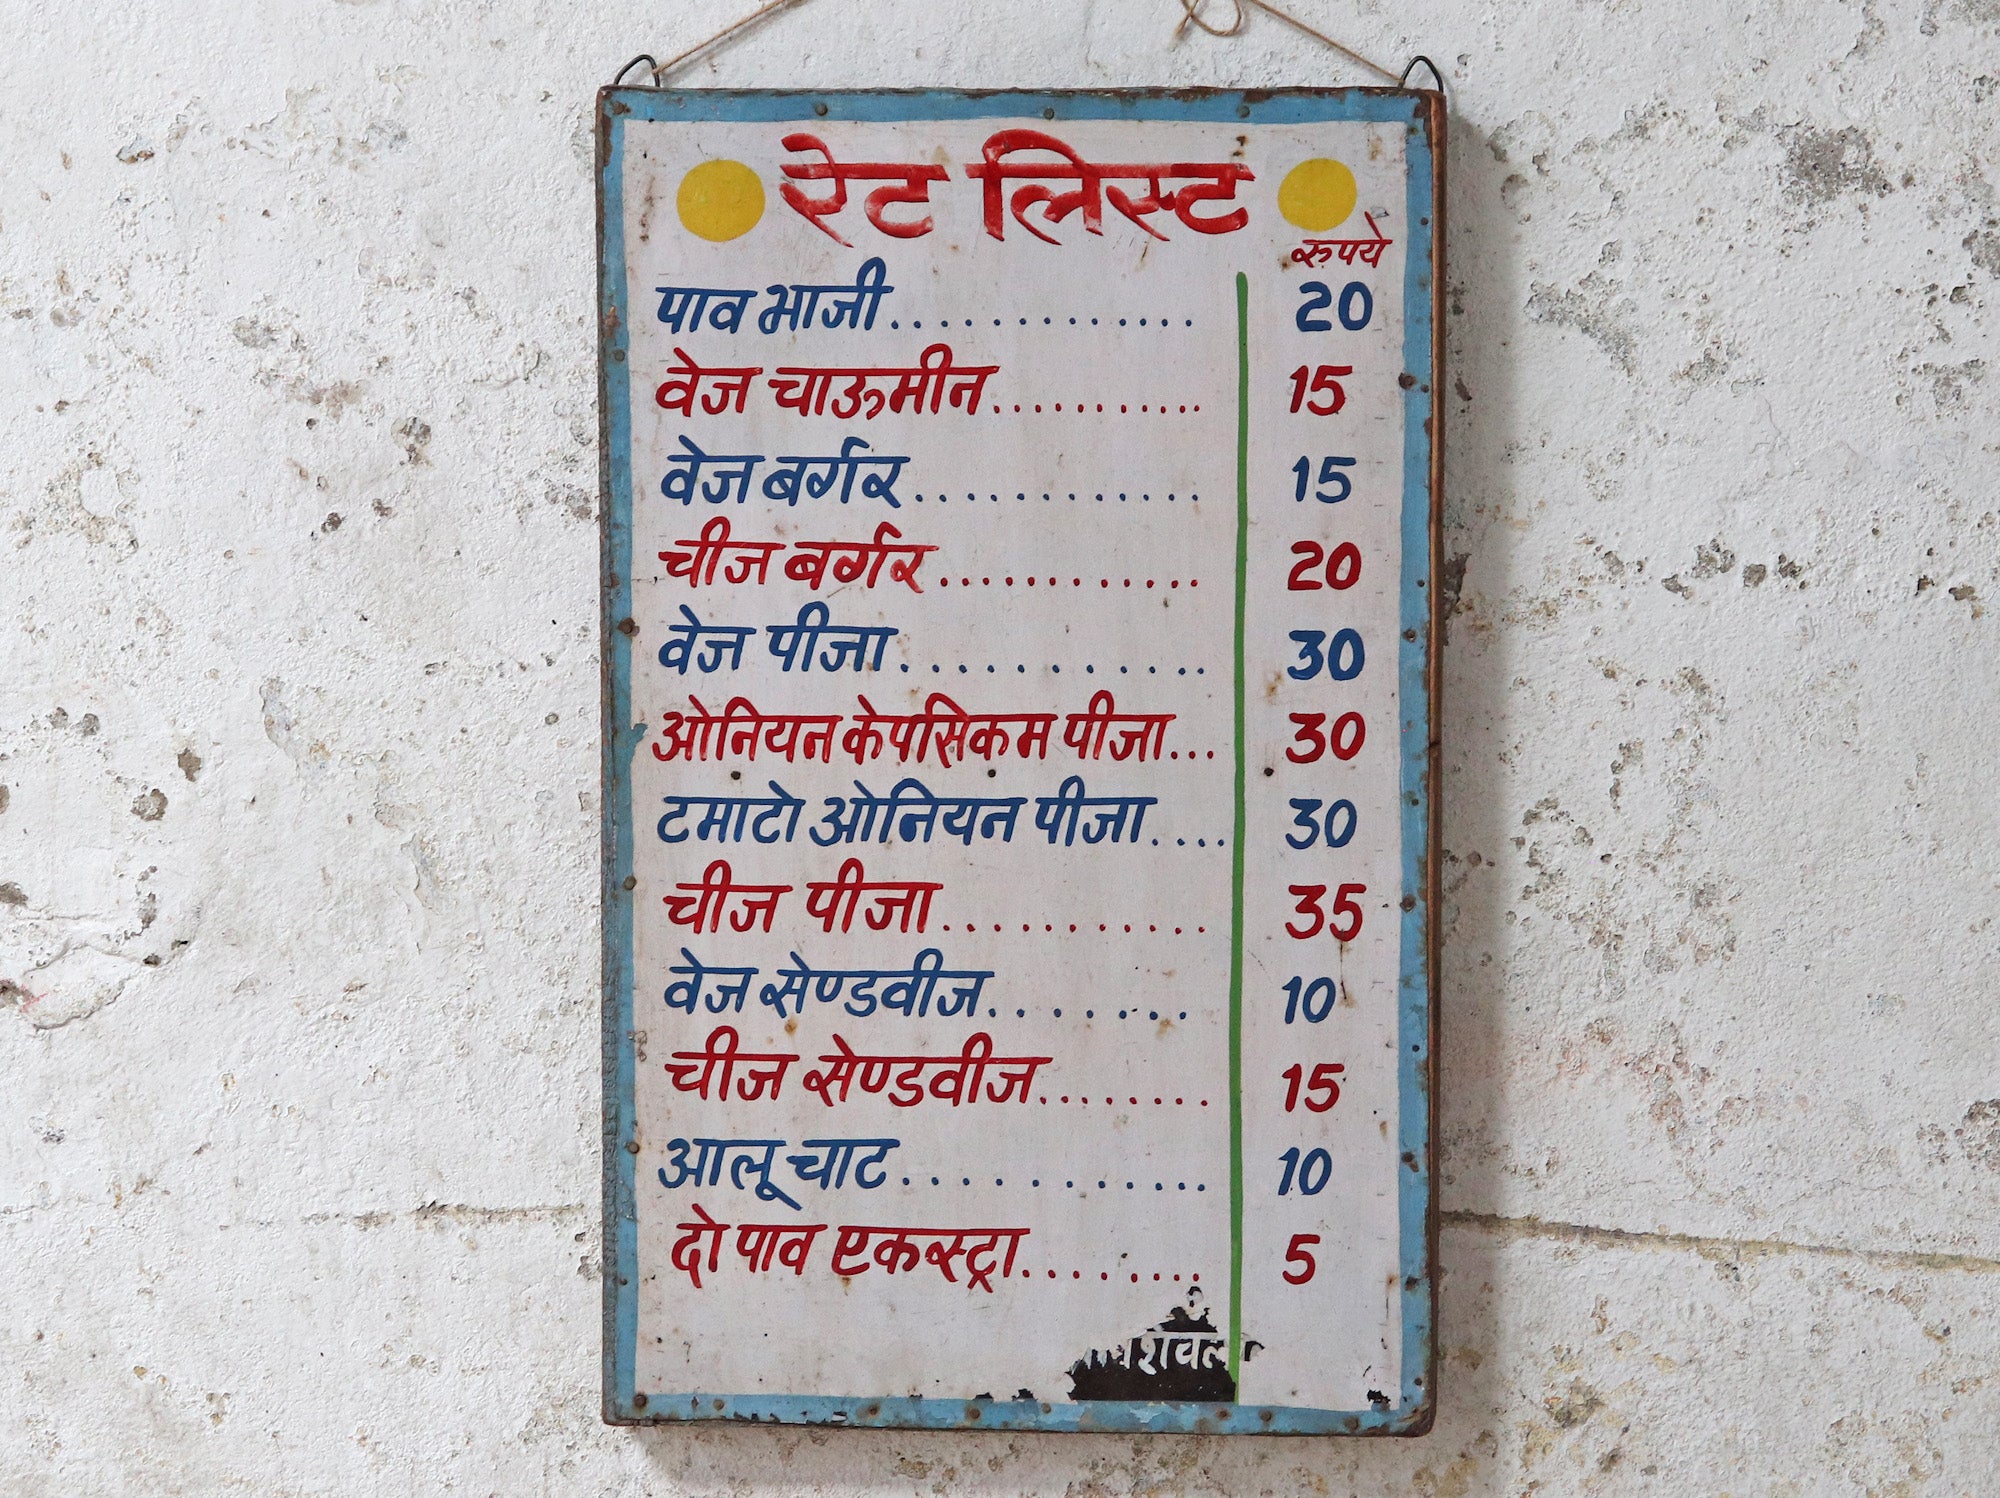 रेट लिस्ट
रुपये
पाव भाजी.............. 20
वेज चाऊमीन........... 15
वेज बर्गर............ 15
चीज बर्गर............ 20
वेज पीजा............ 30
ओनियन केपसिकम पीजा... 30
टमाटो ओनियन पीजा.... 30
चीज पीजा........... 35
वेज सेण्डवीज........ 10
चीज सेण्डवीज........ 15
आलू चाट............ 10
दो पाव एकस्ट्रा........ 5